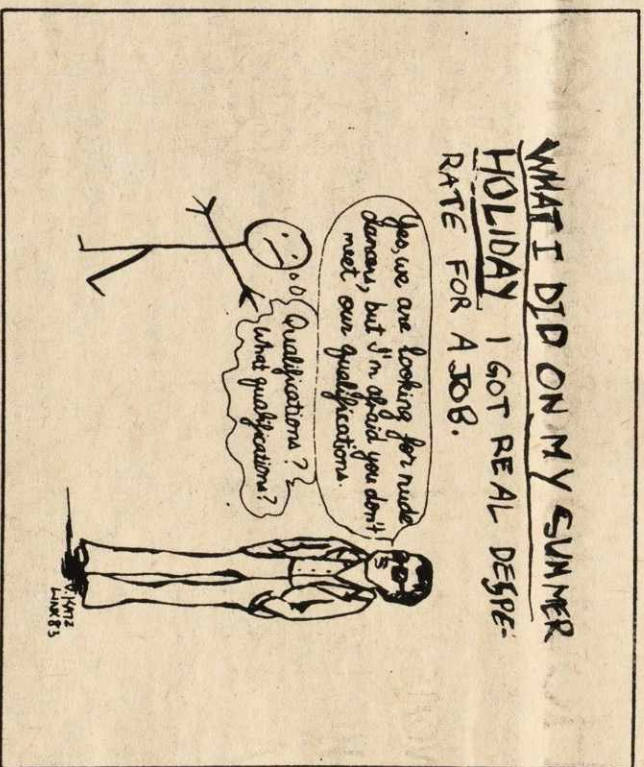 WHAT I DID ON MY SUMMER
HOLIDAY I GOT REAL DESPE-
RATE FOR A JOB.
Yes, we are looking for nude
dancers, but I'm afraid you don't
meet our qualifications.
Qualifications?
What qualifications?
KATZ
LINK 83